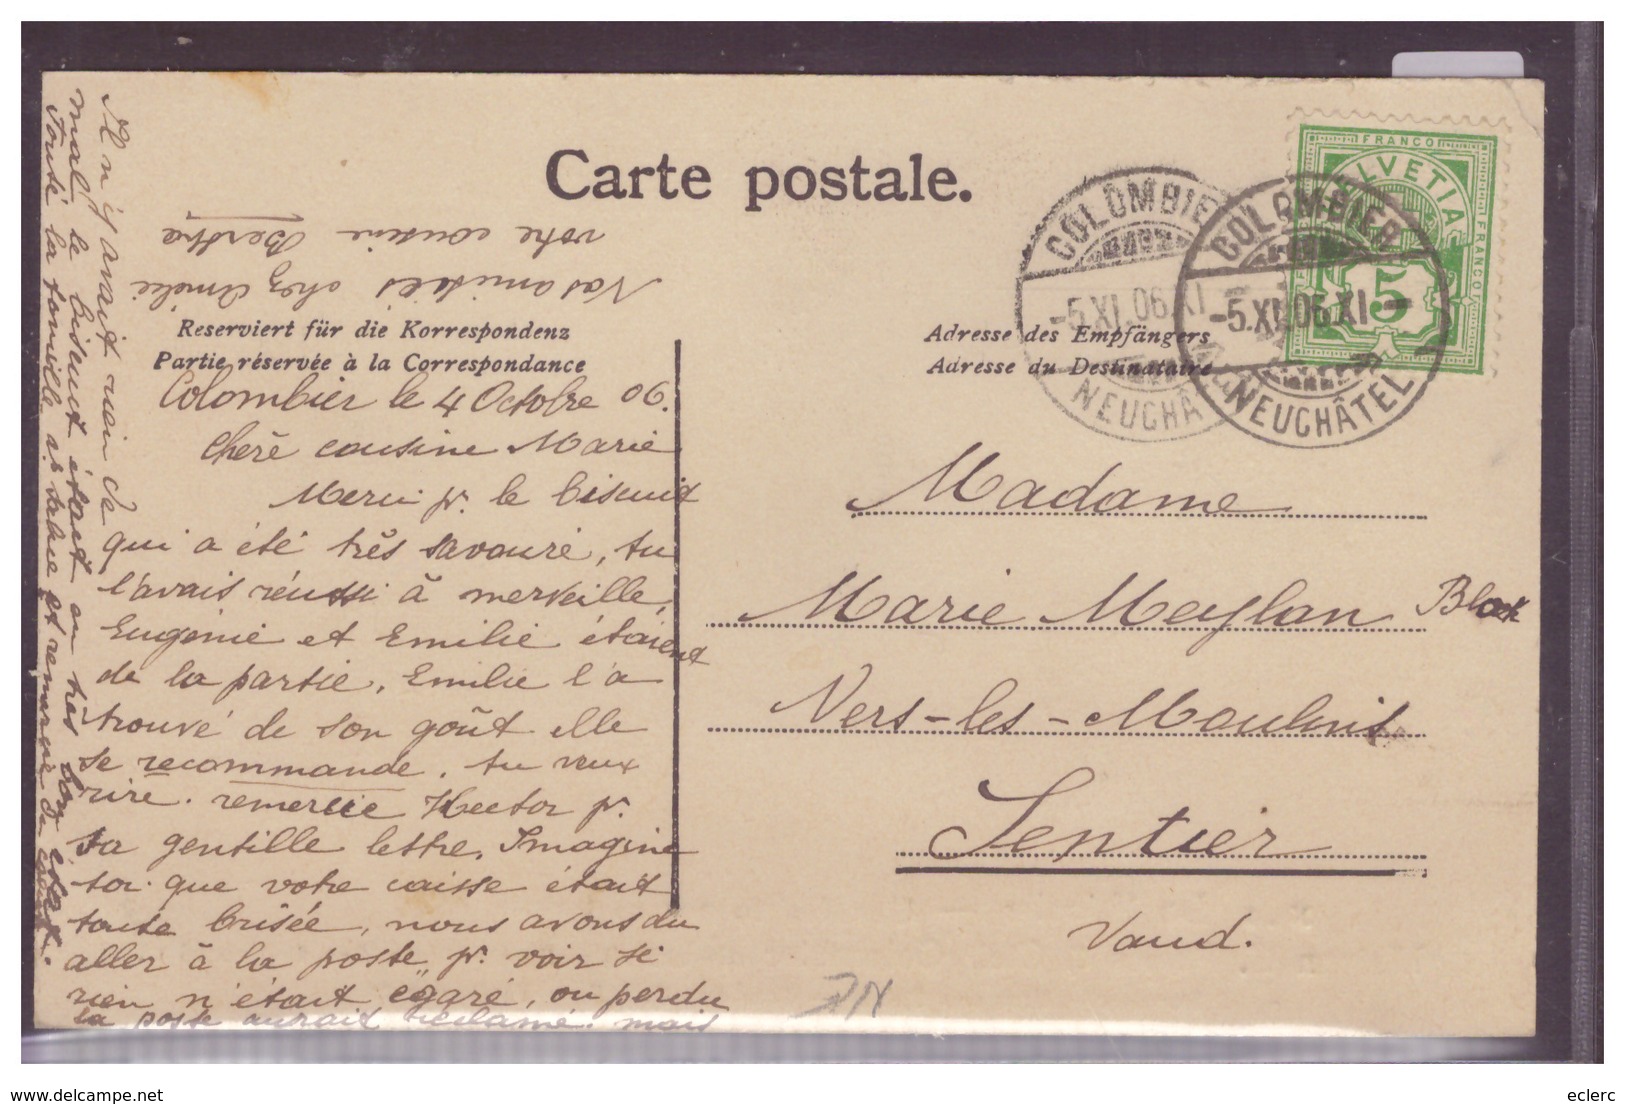 Carte postale.
Reserviert für die Korrespondenz
Partie réservée à la Correspondance
Adresse des Empfängers
Adresse du Destinataire
FRANCO
HELVETIA
FRANCO
5
COLOMBIER
-5.XI.06.XI-
NEUCHÂTEL
COLOMBIER
-5.XI.06.XI-
NEUCHÂTEL
Colombier le 4 Octobre 06.
Chère cousine Marie
Merci pr. le biscuit
qui a été très savouré, tu
l'avais réussi à merveille,
Eugénie et Emilie étaient
de la partie, Emilie l'a
trouvé de son goût elle
se recommande, tu veux
rire. remercie Hector pr.
sa gentille lettre. Imagine
toi que votre caisse était
toute brisée, nous avons du
aller à la poste pr. voir si
rien n'était égaré, ou perdu
la poste aurait réclamé. mais
Il n'y avait rien de
mal, le biscuit était en très bon état.
Toute la famille se et remercie
Nos amitiés chez Amélie
votre cousine Berthe
Madame
Marie Meylan
Vers-les-Moulins
Sentier
Vaud.
delcampe.net
eclerc